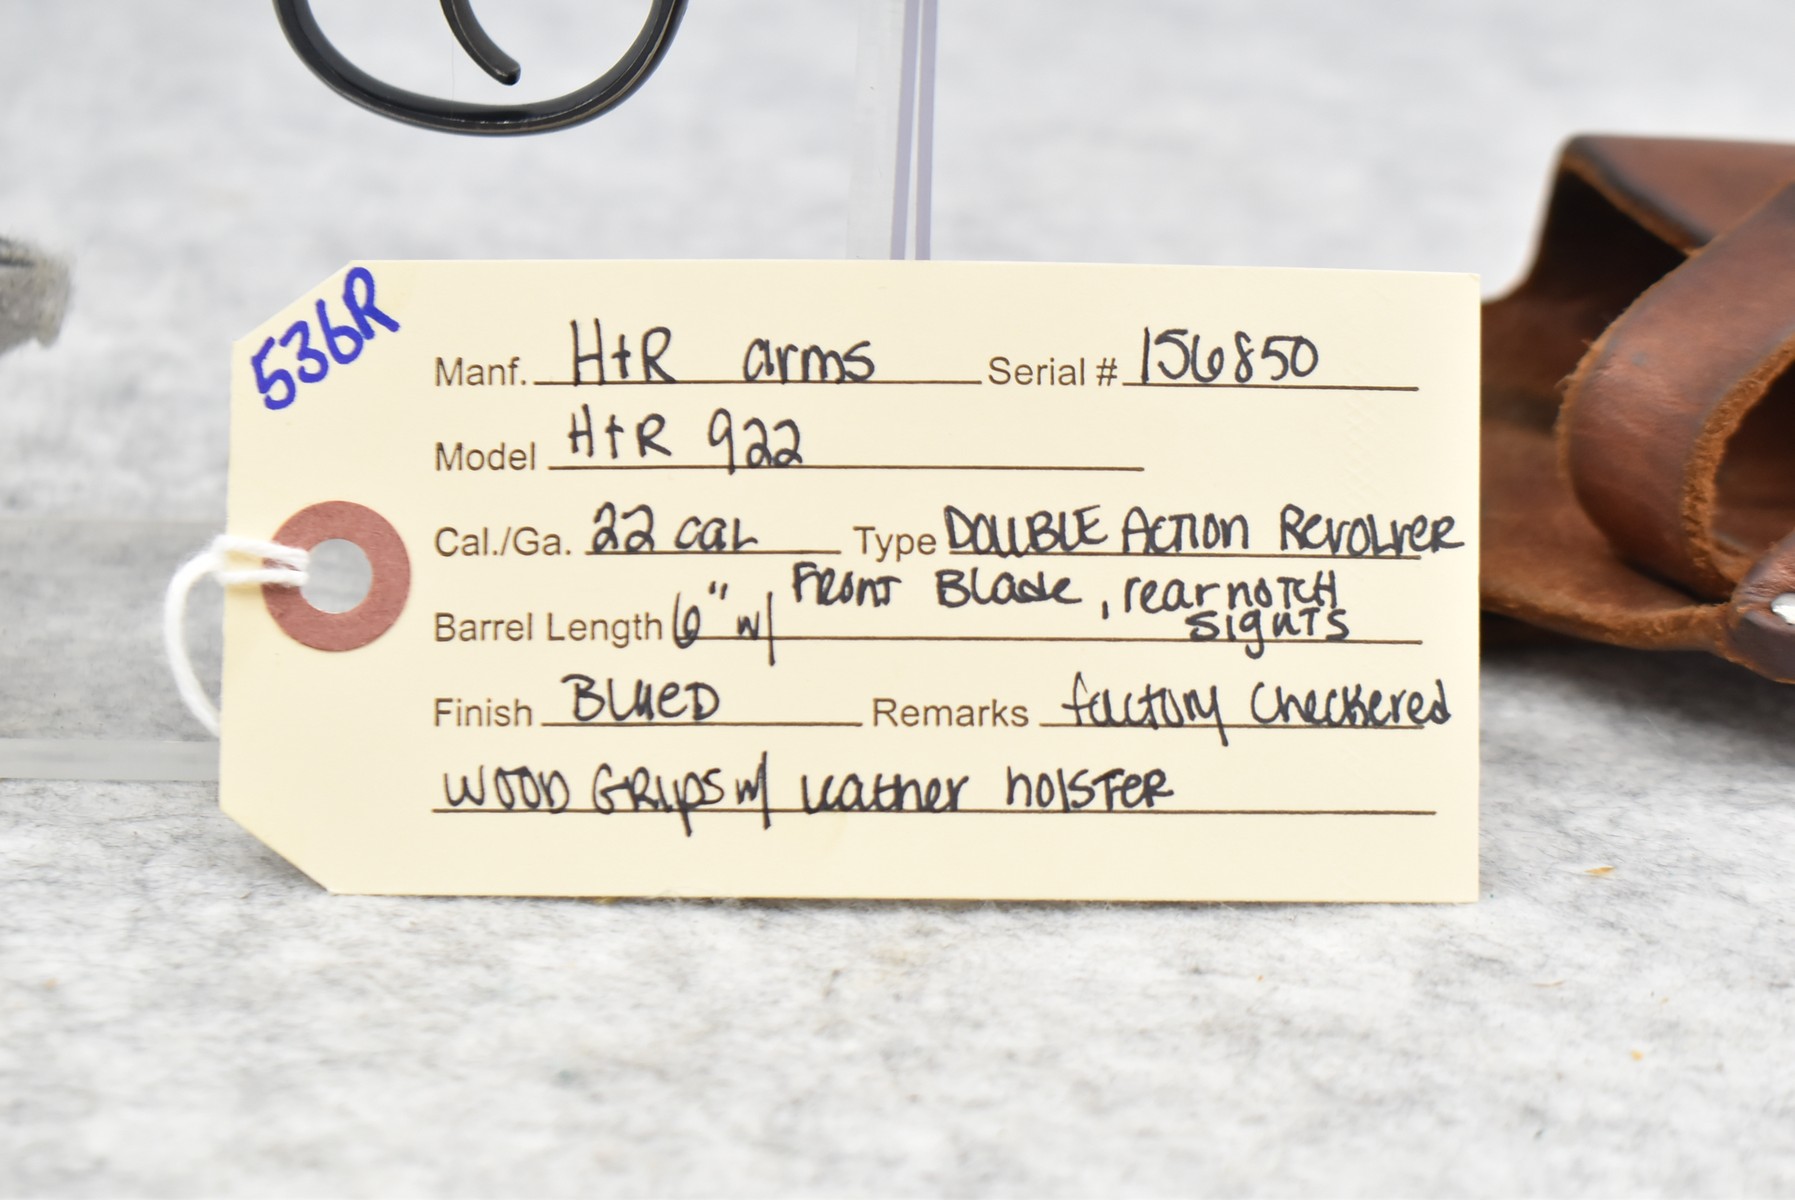 536R
Manf. H+R arms Serial # 156850
Model H+R 922
Cal./Ga. 22 cal Type DOUBLE ACTION REVOLVER
Barrel Length 6" w/ FRONT Blade, rear notch
sights
Finish BLUED Remarks factory checkered
WOOD GRIPS w/ leather holster